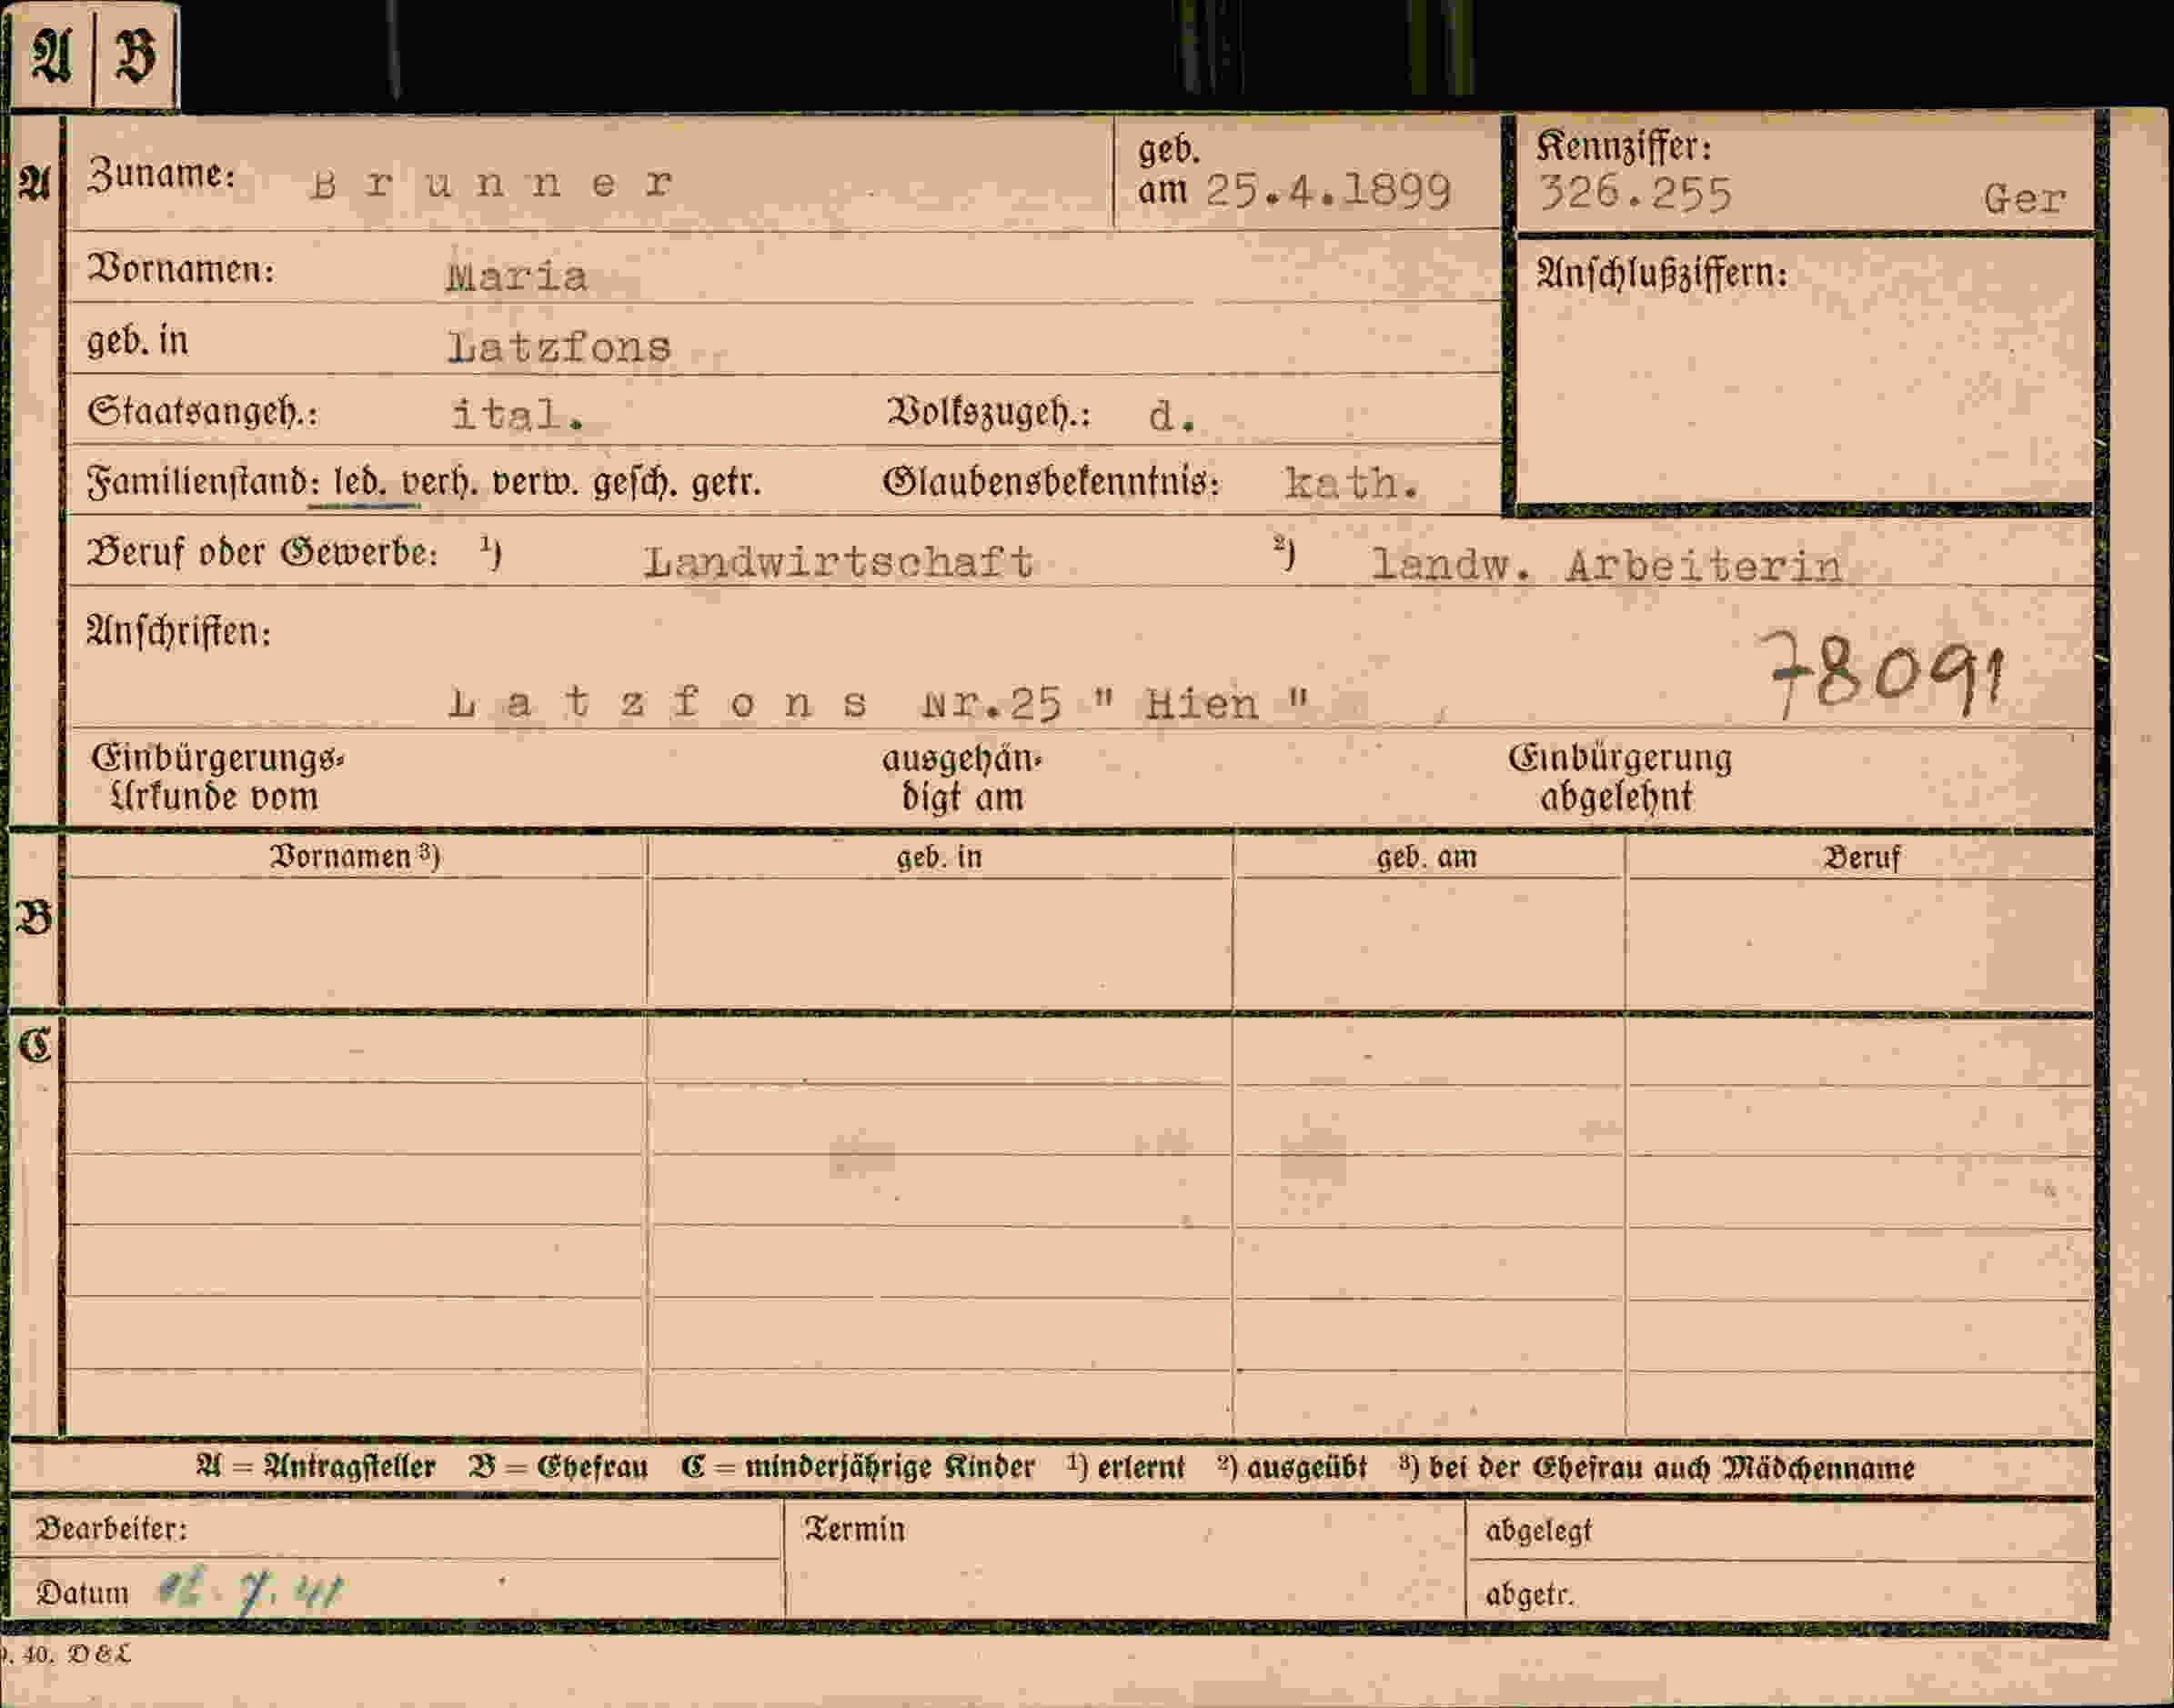 A B
A Zuname: Brunner geb. am 25.4.1899 Kennziffer: 326.255 Ger
Vornamen: Maria Anschlußziffern:
geb. in Latzfons
Staatsangeh.: ital. Volkszugeh.: d.
Familienstand: led. verh. verw. gesch. getr. Glaubensbekenntnis: kath.
Beruf oder Gewerbe: ¹) Landwirtschaft ²) landw. Arbeiterin
Anschriften:
78091
Latzfons Nr.25 " Hien "
Einbürgerungs- ausgehän- Einbürgerung
Urkunde vom digt am abgelehnt
Vornamen ³) geb. in geb. am Beruf
B
C
A = Antragsteller B = Ehefrau C = minderjährige Kinder ¹) erlernt ²) ausgeübt ³) bei der Ehefrau auch Mädchenname
Bearbeiter: Termin abgelegt
Datum 7. 41 abgetr.
40. D&L